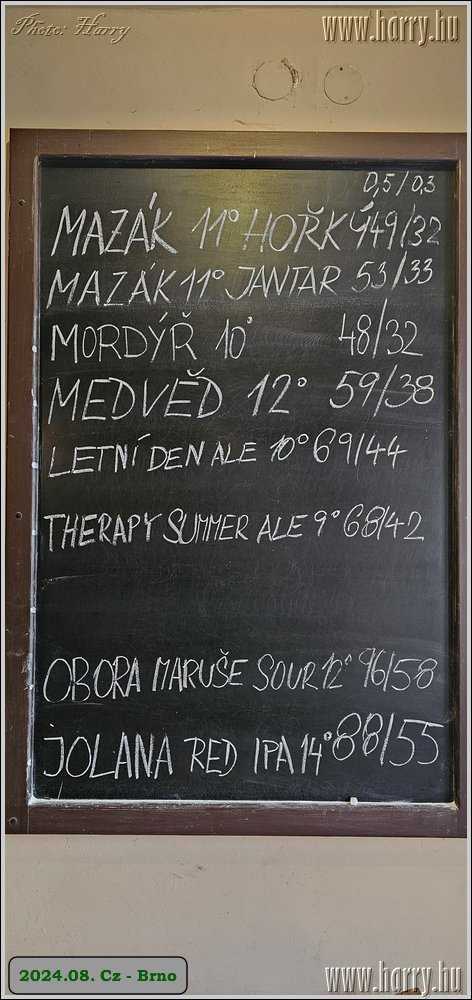 Photo: Harry
www.harry.hu
0,5/0,3
MAZÁK 11° HOŘKÝ 49/32
MAZÁK 11° JANTAR 53/33
MORDÝŘ 10° 48/32
MEDVĚD 12° 59/38
LETNÍ DEN ALE 10° 69/44
THERAPY SUMMER ALE 9° 68/42
OBORA MARUŠE SOUR 12° 96/58
JOLANA RED IPA 14° 88/55
2024.08. Cz - Brno
www.harry.hu